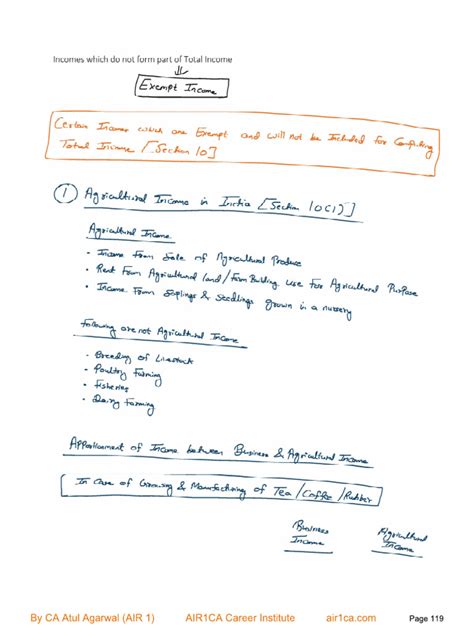 Incomes which do not form part of Total Income
Exempt Income
Certain Incomes which are Exempt and will not be Included for Computing
Total Income [Section 10]
① Agricultural Income in India [Section 10(1)]
Agricultural Income
• Income from Sale of Agricultural Produce
• Rent From Agricultural land/Farm Building Use For Agricultural Purpose
• Income From Saplings & Seedlings grown in a nursery
Following are not Agricultural Income
• Breeding of Livestock
• Poultry Farming
• Fisheries
• Dairy Farming
Apportionment of Income between Business & Agricultural Income
In Case of Growing & Manufacturing of Tea/Coffee/Rubber
Business Agricultural
Income Income
By CA Atul Agarwal (AIR 1) AIR1CA Career Institute air1ca.com Page 119